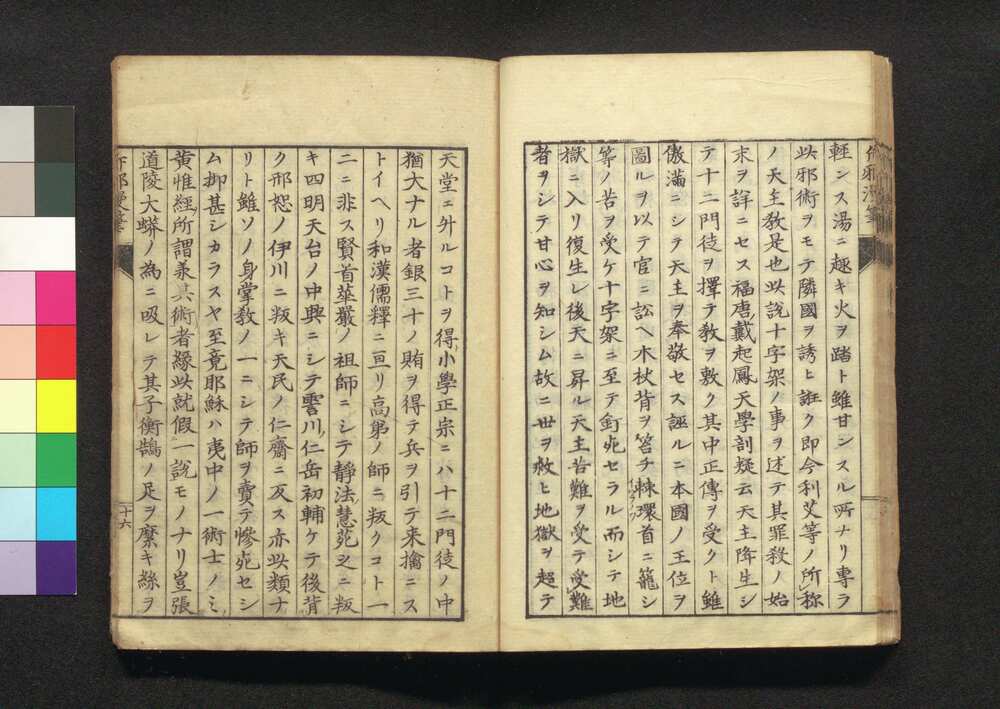 軽ンス湯ニ趣キ火ヲ踏ト雖甘ンスル所ナリ專ラ
此邪術ヲモテ隣國ヲ誘ヒ誑ク即今利艾等ノ所称
ノ天主敎是也此說十字架ノ事ヲ述テ其罪殺ノ始
末ヲ詳ニセス福唐戴起鳳天學剖疑云天主降生シ
テ十二門徒ヲ擇テ敎ヲ敷ク其中正傳ヲ受クト雖
傲滿ニシテ天主ヲ奉敬セス誣ルニ本國ノ王位ヲ
圖ルヲ以テ官ニ訟ヘ木杖背ヲ笞チ棘環首ニ籠シ
等ノ苦ヲ受ケ十字架ニ至テ釘死セラル而シテ地
獄ニ入リ復生レ後天ニ昇ル天主苦難ヲ受テ受難
者ヲシテ甘心ヲ知シム故ニ世ヲ救ヒ地獄ヲ超テ
天堂ニ升ルコトヲ得小學正宗ニハ十二門徒ノ中
猶大ナル者銀三十ノ賄ヲ得テ兵ヲ引テ来擒ニス
トイヘリ和漢儒釋ニ亘リ高弟ノ師ニ叛クコト一
二ニ非ス賢首華嚴ノ祖師ニシテ靜法慧苑之ニ叛
キ四明天台ノ中興ニシテ霅川仁岳初輔ケテ後背
ク邢恕ノ伊川ニ叛キ天民ノ仁齋ニ反ス亦此類ナ
リト雖ソノ身掌敎ノ一ニシテ師ヲ賣テ慘死セシ
ム抑甚シカラスヤ至竟耶穌ハ夷中ノ一術士ノミ
黄惟經所謂兼其術者緣此就假一說モノナリ豈張
道陵大蟒ノ為ニ吸レテ其子衡鵠ノ足ヲ縻キ絲ヲ
十六